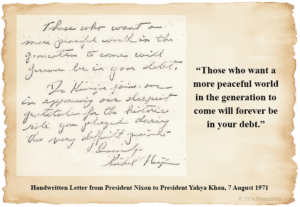 Those who want a
more peaceful world in the
generation to come will
forever be in your debt.
Dr Kissinger joins me
in expressing our deepest
gratitude for the historic
role you played during
this very difficult period.
Sincerely
Richard Nixon
“Those who want a
more peaceful world
in the generation to
come will forever be
in your debt.”
Handwritten Letter from President Nixon to President Yahya Khan, 7 August 1971